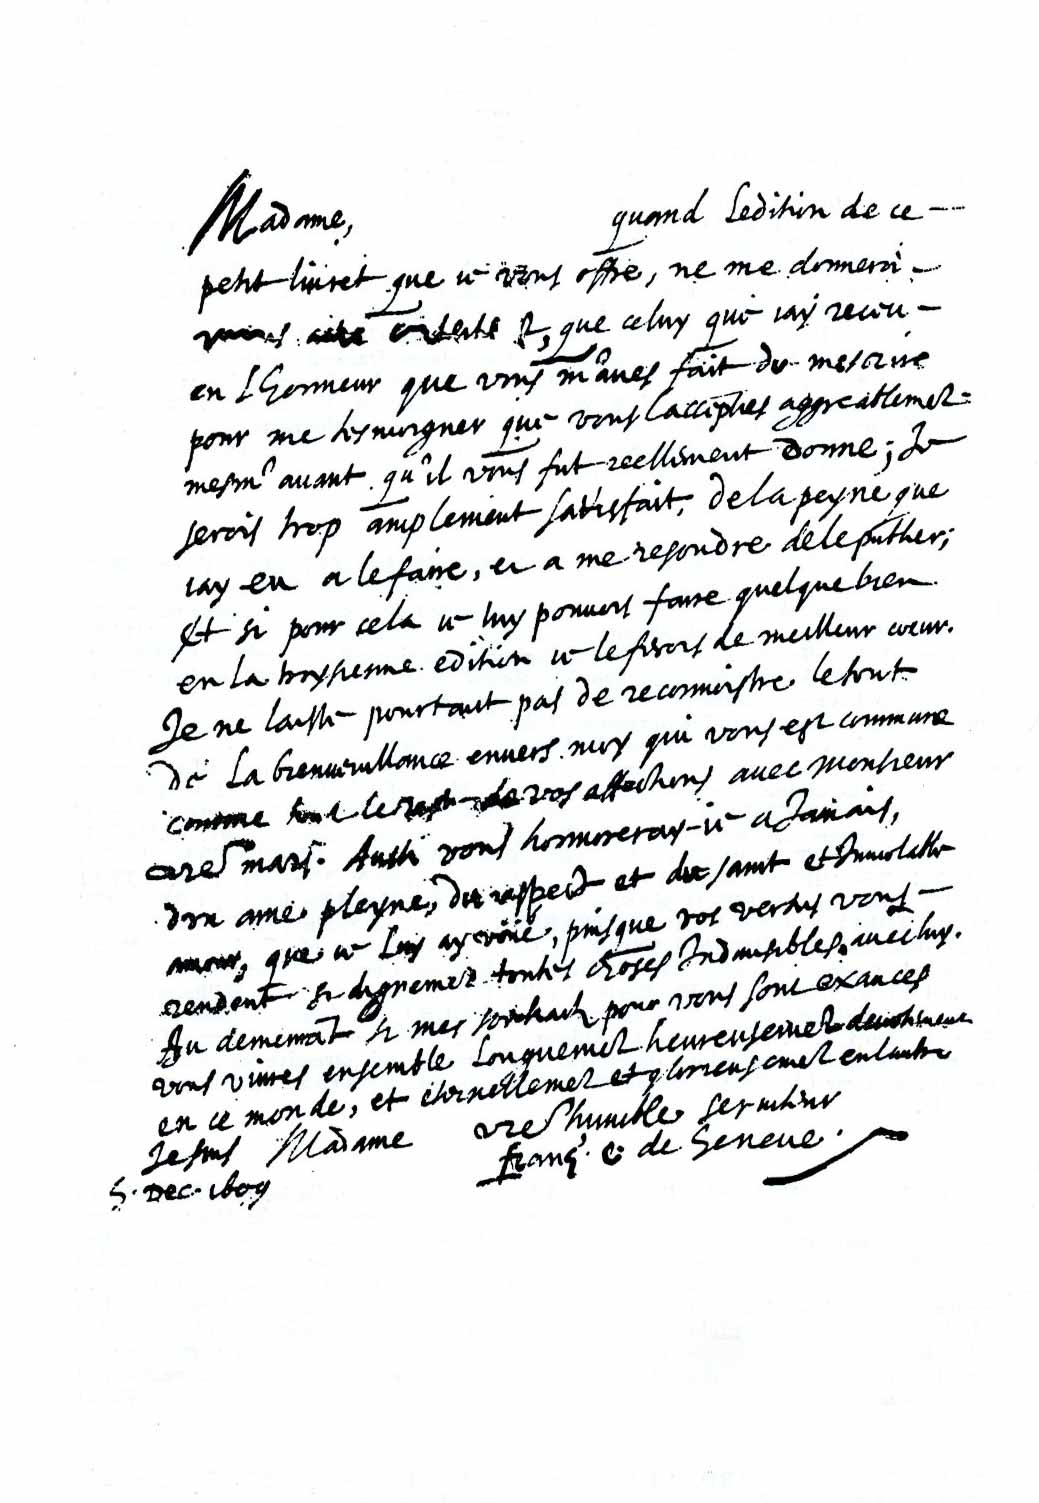 Madame, quand L'edition de ce
petit livret que je vous offre, ne me donneroi
que celuy que j'ay receu
en l'honneur que vous m'avés fait de m'escrire
pour me tesmoigner que vous l'accepties aggreablemēt
mesme avant qu'il vous fut reellement donné; Je
serois trop amplement satisfait, de la peyne que
j'ay eu a le faire, et a me resoudre de le publier;
Et si pour cela je luy pouvois faire quelque bien
en la troysiesme edition je le ferois de meilleur cœur.
Je ne laisse pourtant pas de reconnoistre le tout
de la bienveuillance envers moy qui vous est commune
comme tout le reste de vos affections avec monsieur
vre mary. Aussi vous honnoreray-je a Jamais,
d'un' ame pleyne, du respect et du saint et Inviolable
amour, que je luy ay voüé, puisque vos vertus vous
rendent si dignemēt toutes choses Indivisibles avec luy.
Au demeurāt si mes souhaitz pour vous sont exaucés
vous vivres ensemble longuemēt heureusemēt
en ce monde, et eternellemēt et glorieusemēt en l'autre
Je suis Madame vre humble serviteur
Franç.ˢ E. de Geneve.
5. Dec. 1609